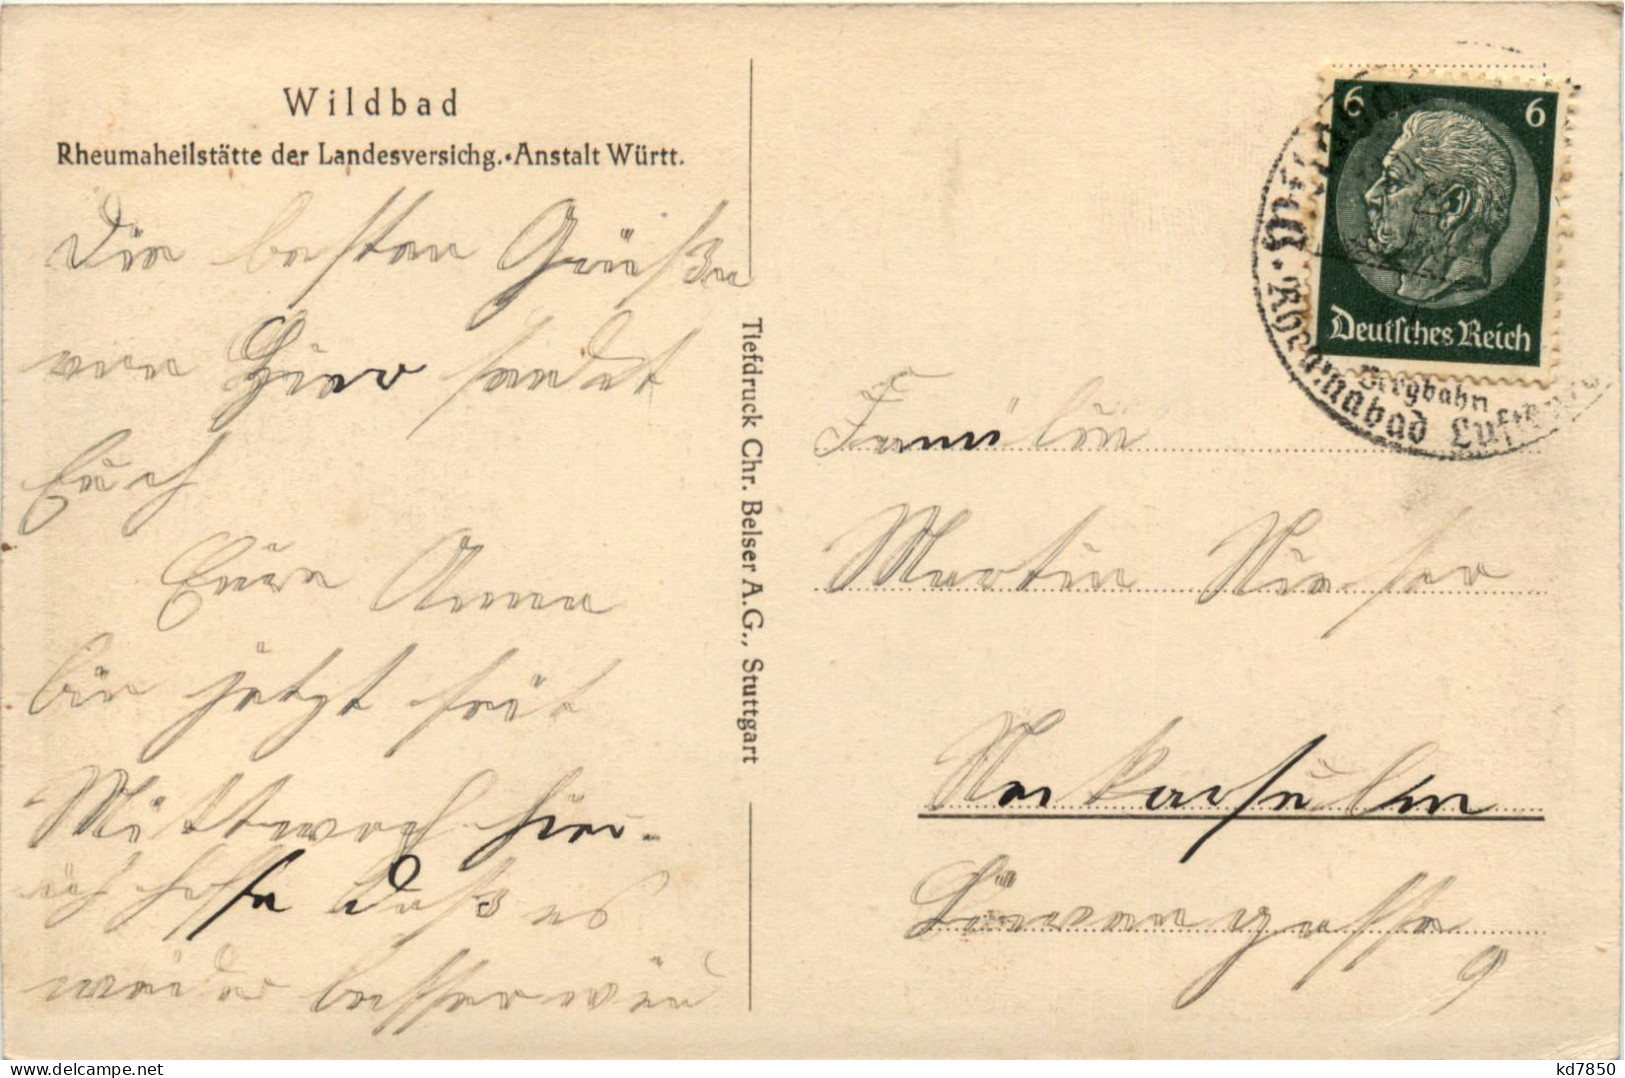 Wildbad
Rheumaheilstätte der Landesversichg.-Anstalt Württ.
Die besten Grüße
von hier sendet
Euch
Eure Anna
bin jetzt seit
Mittwoch hier.
ich hoffe daß es
wieder besser wird
Tiefdruck Chr. Belser A.G., Stuttgart
6 6
Deutsches Reich
Wildbad
Bergbahn
Rheumabad Luftkurort
Familie
Martin
Neckarsulm
Löwengasse
9
kd7850